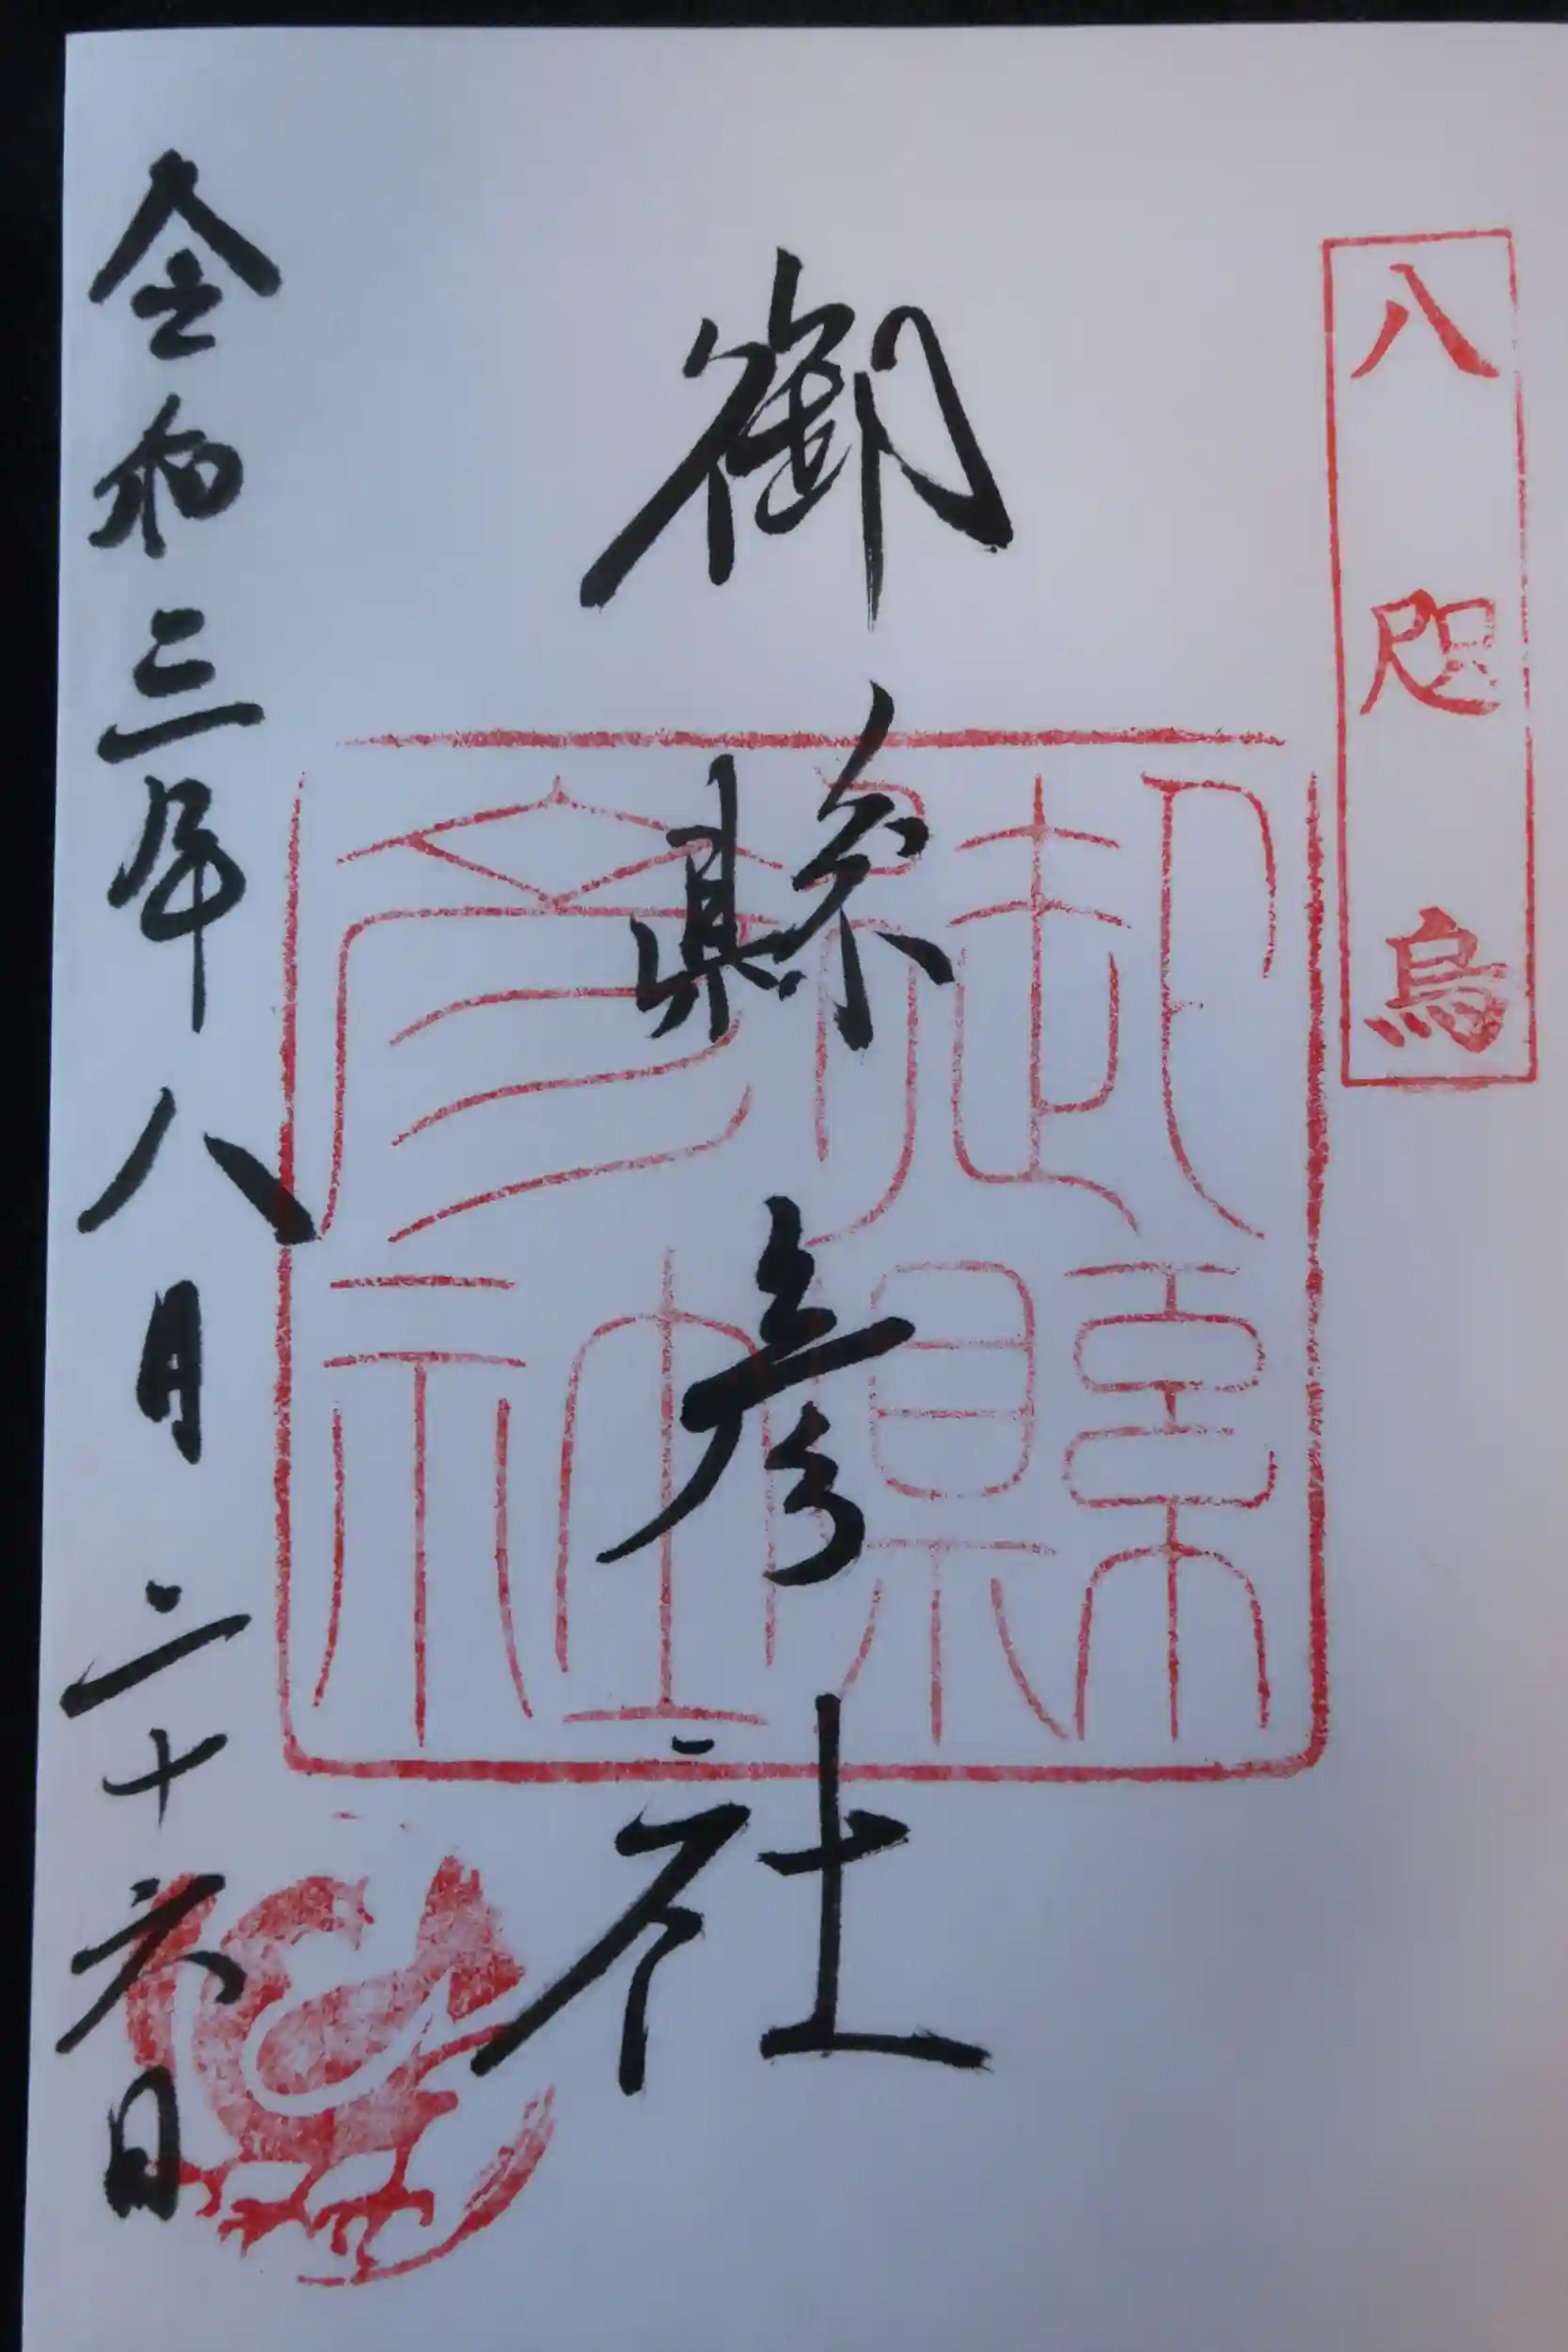 八咫烏
御縣彦社
御縣
彦社
令和三年八月二十六日